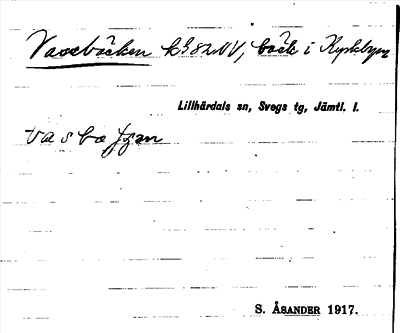 Vassbäcken k 82 NV, bäck i Kyrkbyn
Lillhärdals sn, Svegs tg, Jämtl. l.
S. ÅSANDER 1917.